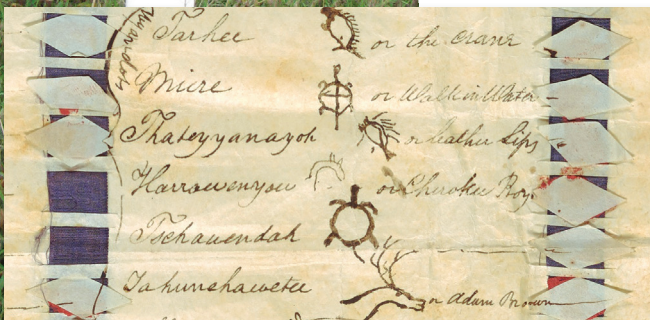 Wyandots
Tarhee or the Crane
Miere or Walk in Water
Thateyyanayoh or Leather Lips
Harrouenyou or Cherokee Boy
Tschauendah
Tahunshawettee or Adam Brown